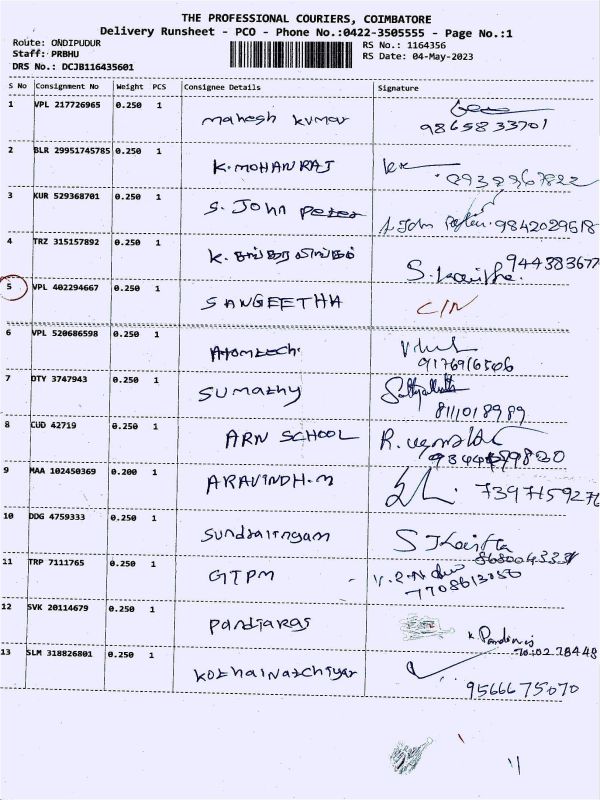 THE PROFESSIONAL COURIERS, COIMBATORE
Delivery Runsheet - PCO - Phone No.:0422-3505555 - Page No.:1
Route: ONDIPUDUR
RS No.: 1164356
Staff: PRBHU
RS Date: 04-May-2023
DRS No.: DCJB116435601
S No Consignment No Weight PCS Consignee Details Signature
1 VPL 217726965 0.250 1 mahesh kumar
9865833701
2 BLR 29951745785 0.250 1 K. MOHAN RAJ
3 KUR 529368701 0.250 1 S. John Peter 9842029618
4 TRZ 315157892 0.250 1 K.
944383677
5 VPL 402294667 0.250 1 SANGEETHA C/N
6 VPL 520686598 0.250 1 Atomtech
9176916506
7 OTY 3747943 0.250 1 Sumathy
8111018989
8 CUD 42719 0.250 1 ARN SCHOOL
9 MAA 102450369 0.200 1 ARAVINDH.M 7397159276
10 DDG 4759333 0.250 1
11 TRP 7111765 0.250 1 GTPM
12 SVK 20114679 0.250 1 Pandiaraj
13 SLM 318826801 0.250 1 Kothainatchiyar
9566675070